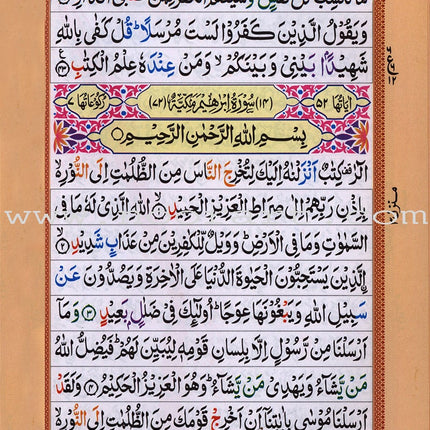 وَيَقُوْلُ الَّذِيْنَ كَفَرُوْا لَسْتَ مُرْسَلًا ؕ قُلْ كَفٰى بِاللّٰهِ
شَهِيْدًۢا بَيْنِيْ وَبَيْنَكُمْ ۙ وَمَنْ عِنْدَهٗ عِلْمُ الْكِتٰبِ ﴿۴۳﴾
اٰيَاتُهَا ۵۲ ﴿۱۴﴾ سُوْرَةُ اِبْرٰهِيْمَ مَكِّيَّةٌ ﴿۷۲﴾ رُكُوْعَاتُهَا ۷
بِسْمِ اللّٰهِ الرَّحْمٰنِ الرَّحِيْمِ
الٓرٰ ۫ كِتٰبٌ اَنْزَلْنٰهُ اِلَيْكَ لِتُخْرِجَ النَّاسَ مِنَ الظُّلُمٰتِ اِلَى النُّوْرِ ۙ
بِاِذْنِ رَبِّهِمْ اِلٰى صِرَاطِ الْعَزِيْزِ الْحَمِيْدِ ﴿۱﴾ اللّٰهِ الَّذِيْ لَهٗ مَا فِي
السَّمٰوٰتِ وَمَا فِي الْاَرْضِ ؕ وَوَيْلٌ لِّلْكٰفِرِيْنَ مِنْ عَذَابٍ شَدِيْدِ ﴿۲﴾
الَّذِيْنَ يَسْتَحِبُّوْنَ الْحَيٰوةَ الدُّنْيَا عَلَى الْاٰخِرَةِ وَيَصُدُّوْنَ عَنْ
سَبِيْلِ اللّٰهِ وَيَبْغُوْنَهَا عِوَجًا ؕ اُولٰٓئِكَ فِيْ ضَلٰلٍۢ بَعِيْدٍ ﴿۳﴾ وَمَاۤ
اَرْسَلْنَا مِنْ رَّسُوْلٍ اِلَّا بِلِسَانِ قَوْمِهٖ لِيُبَيِّنَ لَهُمْ ؕ فَيُضِلُّ اللّٰهُ
مَنْ يَّشَآءُ وَيَهْدِيْ مَنْ يَّشَآءُ ؕ وَهُوَ الْعَزِيْزُ الْحَكِيْمُ ﴿۴﴾ وَلَقَدْ
اَرْسَلْنَا مُوْسٰى بِاٰيٰتِنَاۤ اَنْ اَخْرِجْ قَوْمَكَ مِنَ الظُّلُمٰتِ اِلَى النُّوْرِ ۙ